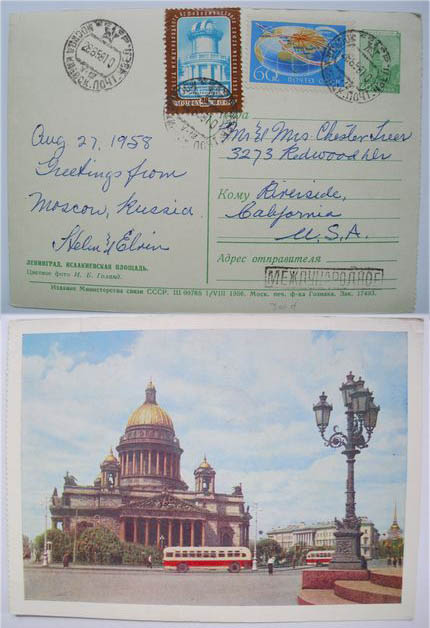 60к ПОЧТА СССР
Куда
Mr & Mrs. Chester
3273 Redwood Dr
Кому Riverside,
California
U. S. A.
Адрес отправителя
МЕЖДУНАРОДНОЕ
Aug 27, 1958
Greetings from
Moscow, Russia
Helen & Elvin
ЛЕНИНГРАД. ИСААКИЕВСКАЯ ПЛОЩАДЬ.
Цветное фото И. Б. Голанд.
Издание Министерства связи СССР. Ш 00785 1/VIII 1956. Моск. печ. ф-ка Гознака. Зак. 17493.